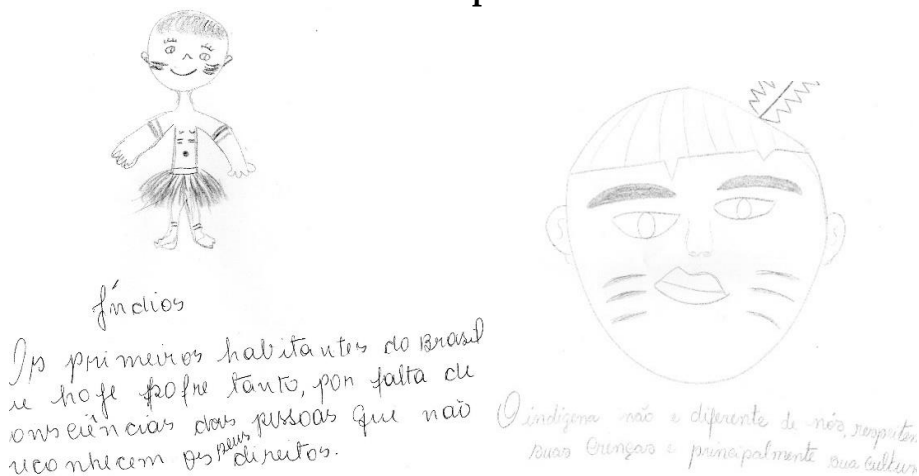 Índios
Os primeiros habitantes do Brasil
e hoje sofre tanto, por falta de
onsciências das pessoas que não
reconhecem os seus direitos.
O indígena não e diferente de nós, respeitem
suas Crenças e principalmente sua Cultura